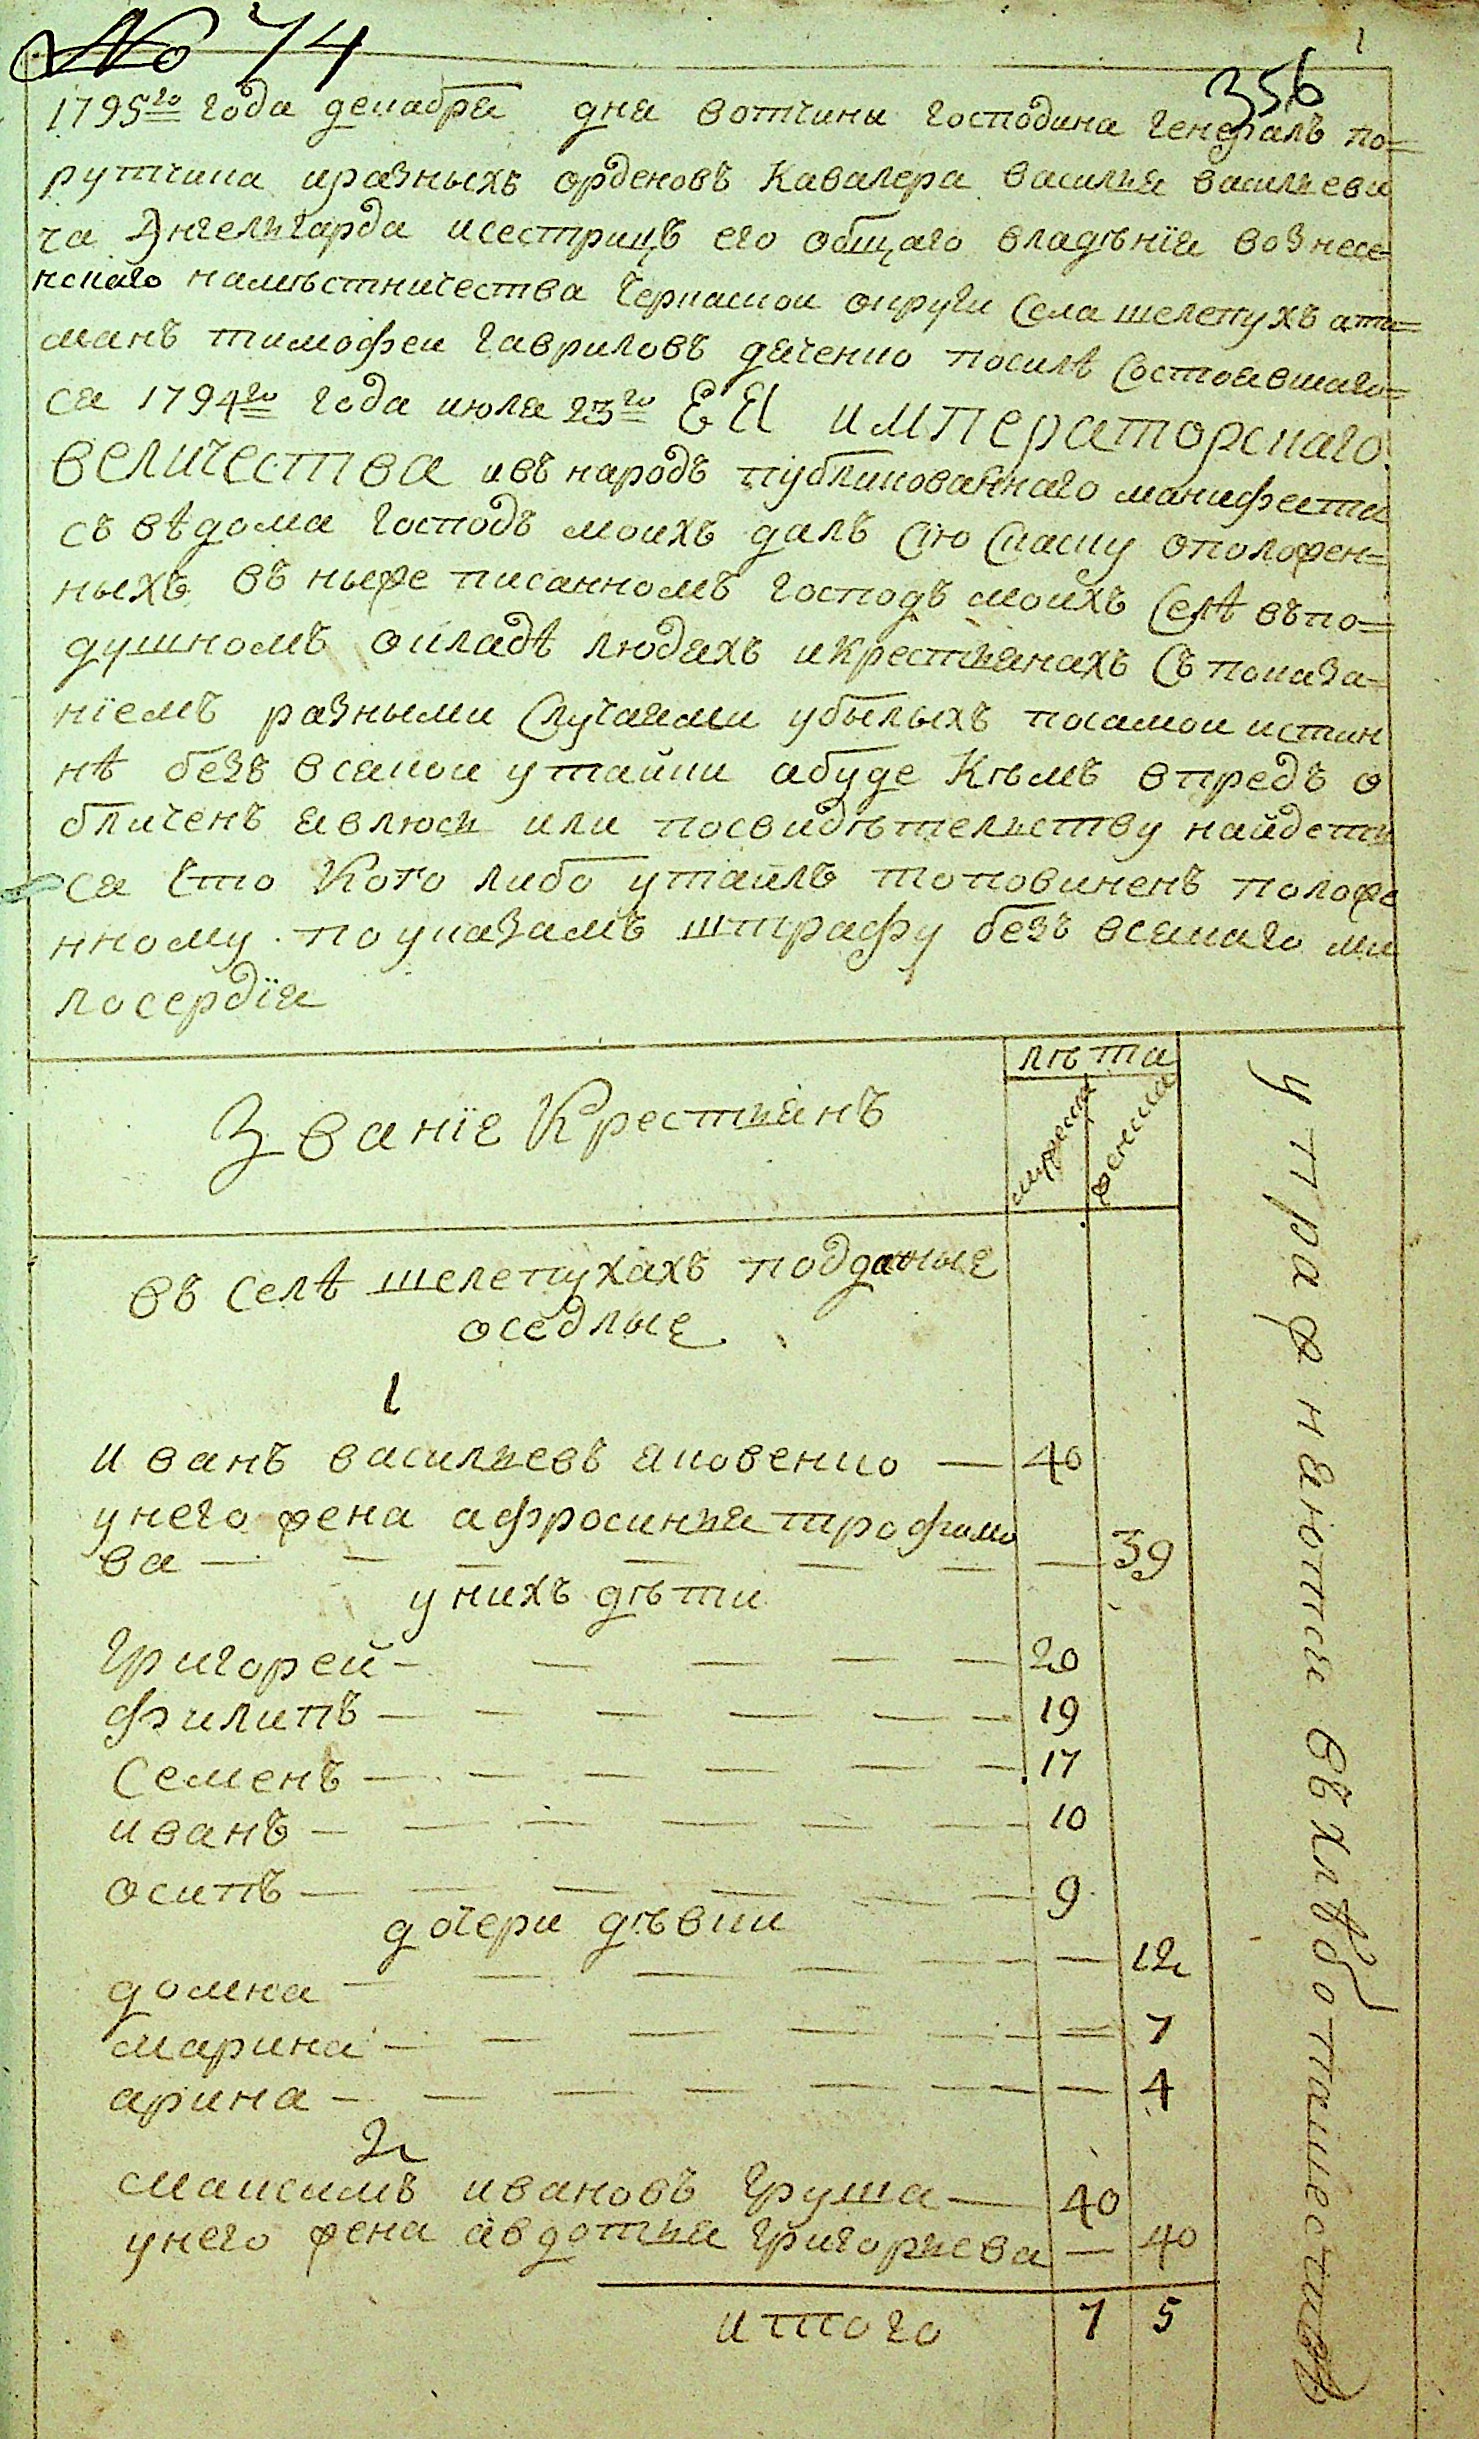 № 74
1
356
1795го года декабря дня вотчины господина генералъ по=
рутчика иразныхъ орденовъ Кавалера василья васильеви
ча Энгельгарда исестрицъ его общаго владѣнія вознесе
нскаго намѣстничества Черкаской округи Села шелепухъ ата=
манъ тимофей гавриловъ дяченко посилѣ Состоявшаго=
ся 1794го года июля 23го ЕЯ императорскаго
величества ивъ народъ публикованнаго манифеста
съ вѣдома господъ моихъ далъ Сію Скаску оположен=
ныхъ въ ниже писанномъ господъ моихъ Селѣ въпо=
душномъ окладѣ людяхъ икрестьянахъ Съ показа=
ніемъ разными Случаями убылыхъ посамой истин
нѣ безъ всякой утайки абуде Кѣмъ впредъ о
бличенъ явлюсь или посвидѣтельству найдеть
ся Что Кого либо утаилъ топовиненъ положе
нному поуказамъ штрафу безъ всякаго ми
лосердія
Званіе Крестьянъ
лѣта
мужеска
женска
въ Селѣ шелепухахъ подданые
оседлые
1
иванъ васильевъ яковенко — 40
унего жена афросинья трофимо
ва — 39
унихъ дѣти
Григорей — 20
филипъ — 19
Семенъ — 17
иванъ — 10
осипъ — 9
дочери дѣвки
домна — 12
марина — 7
арина — 4
2
максимъ ивановъ Груша — 40
унего жена авдотья Григорьева — 40
итого 7 5
упражняются въ хлѣбопашестве